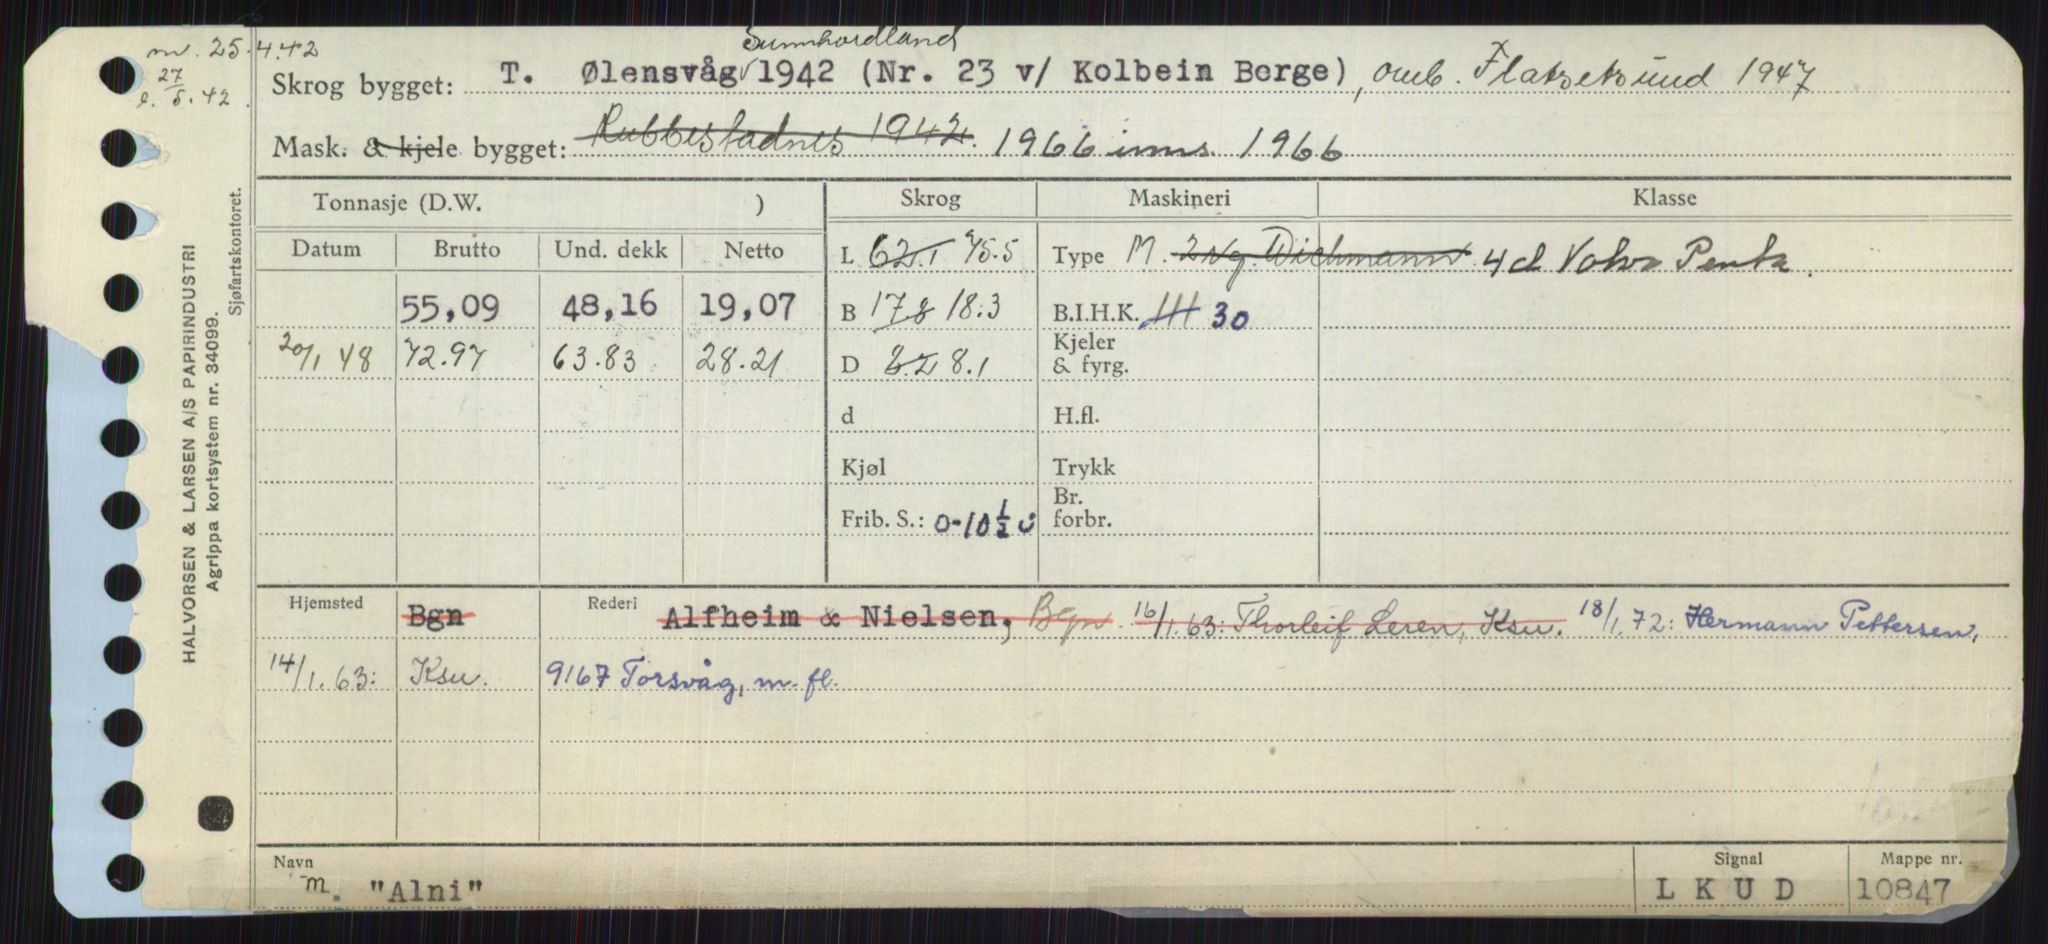 m. 25.4.42
27
l. 5.42
Sunnhordland
Skrog bygget: T. Ølensvåg 1942 (Nr. 23 v/ Kolbein Borge), omb. Flatsetsund 1947
Mask. & kjele bygget: Rubbestadnes 1942. 1966 inns. 1966
Tonnasje (D.W. ) Skrog Maskineri Klasse
Datum Brutto Und. dekk Netto L 62.1 75.5 Type M. 2 syl. Wichmann 4 cl Volvo Penta.
55,09 48,16 19,07 B 17.8 18.3 B.I.H.K. 30
20/1 48 72.97 63.83 28.21 D 8.2 8.1 Kjeler & fyrg.
d H.fl.
Kjøl Trykk
Frib. S.: 0-10 1/2 Br. forbr.
Hjemsted Bgn Rederi Alfheim & Nielsen, Bgn. 16/1.63: Thorleif Leren, Ksu. 18/1.72: Hermann Pettersen,
14/1.63: Ksu. 9167 Torsvåg, m. fl.
Navn Signal Mappe nr.
m. "Alni" LKUD 10847
HALVORSEN & LARSEN A/S PAPIRINDUSTRI
Agrippa kortsystem nr. 34099.
Sjøfartskontoret.